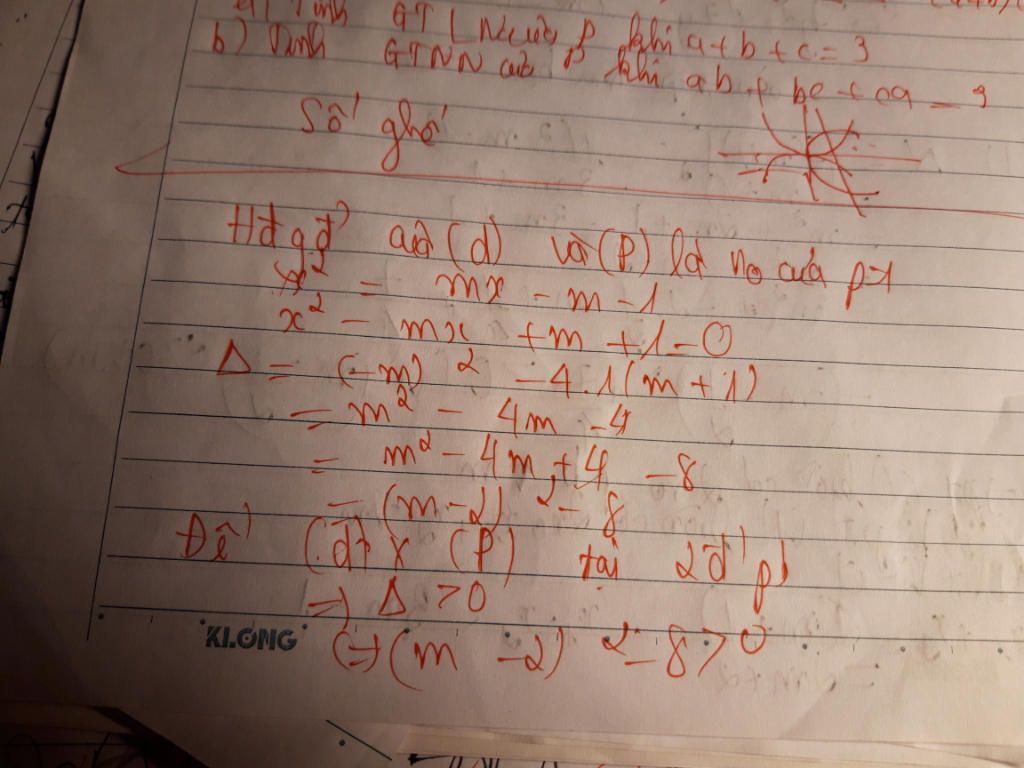 Tính GTLN của P khi a+b+c=3
b) Tính GTNN của P khi ab + bc + ca = 9
Số ghế
Hđgđ' của (d) và (P) là no của pt
x² = mx - m - 1
x² - mx + m + 1 = 0
Δ = (-m)² - 4.1(m + 1)
= m² - 4m - 4
= m² - 4m + 4 - 8
= (m - 2)² - 8
Để (d) x (P) tại 2đ' p'
=> Δ > 0
KLONG
<=> (m - 2)² - 8 > 0